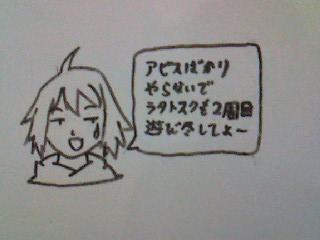 アビスばかり
やらないで
ラタトスクも2周目
遊び尽してよ〜